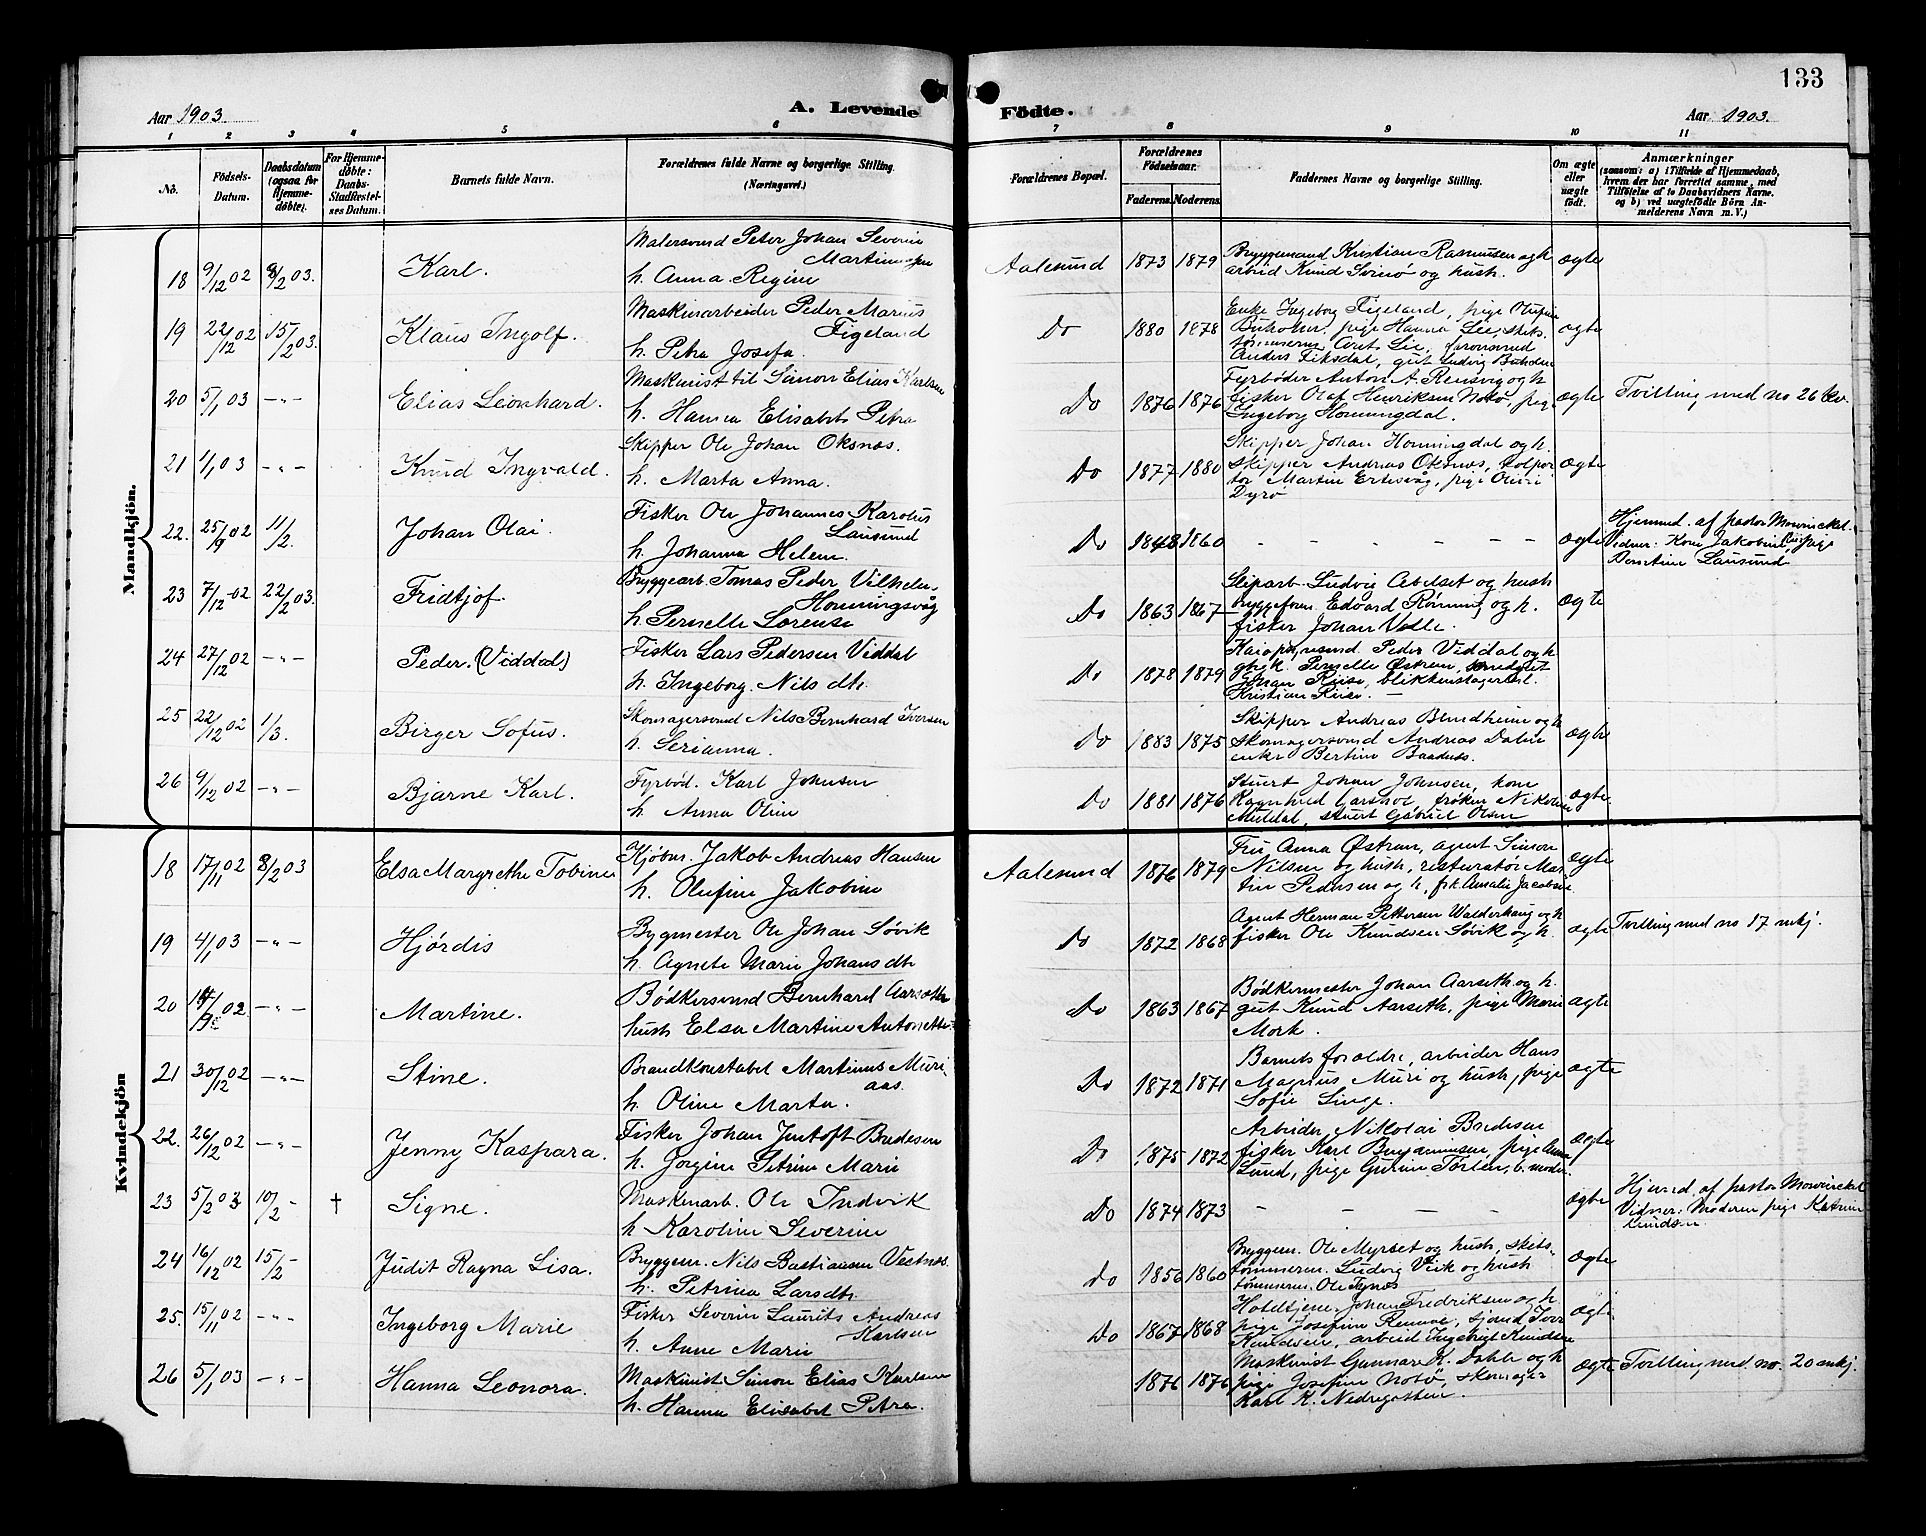 133
Aar 1903.
A. Levende Födte.
Aar 1903.
1 2 3 4 5 6 7 8 9 10 11
No.
Födsels-Datum.
Daabsdatum (ogsaa for Hjemme-döbte).
For Hjemme-döbte: Daabs-Stadfæstel-ses Datum.
Barnets fulde Navn.
Forældrenes fulde Navne og borgerlige Stilling. (Næringsvei.)
Forældrenes Bopæl.
Forældrenes Födselsaar.
Faderens. Moderens.
Faddernes Navne og borgerlige Stilling.
Om ægte eller uægte födt.
Anmærkninger
(saasom: a) i Tilfælde af Hjemmedaab, hvem der har forrettet samme, med Tilföielse af to Daabsvidners Navne, og b) ved uægtefödte Börn An-melderens Navn m. V.)
Mandkjön.
18 9/12 02 8/2 03. Karl.
Malersvend Peter Johan Severin Martinsen
h. Anna Regine
Aalesund 1873 1879
Bryggemand Kristian Rasmussen og h
arbeid Knud Svinö og hush.
ægte
19 22/12 02 15/2 03. Klaus Ingolf.
Maskinarbeider Peder Marius Figeland
h. Petra Josefa.
Do 1880 1878
Enke Ingeborg Figeland, pige
pige Hanna Lie, skibs-
tömmerm.
Anders Fiksdal, gut Ludvig
ægte
20 5/1 03 -"- Elias Leonhard.
Maskinist til Simon Elias Karlsen
h. Hanna Elisabet Petra
Do 1876 1876
Fyrböder Anton A. og h
fisker Olaf Henriksen Notö, pige
Ingeborg Honningdal.
ægte Tvilling med no 26 kv.
21 1/1 03 -"- Knud Ingvald.
Skipper Ole Johan Oksnæs.
h. Marta Anna.
Do 1877 1880
Skipper Johan Honningdal og h.
skipper Andreas Oksnæs, kolpor
tör Martin Ertesvåg, pige
Dyrö
ægte
22. 25/9 02 11/2. Johan Olai.
Fisker Ole Johannes Karolus Lausund
h. Johanna Helene.
Do 1848 1860
- - - - - -
ægte
Hjemmed. af pastor Mowinckel.
Vidner: Kone Jakobine pige
Lausund
23 7/12 02 22/2 03. Fridtjof.
Bryggearb. Tomas Peder Vilhelm Honningsvåg
h. Pernelle Lorense
Do 1863 1867
Sliparb. Ludvig og hush
bryggeform. Edvard Rönning og h.
fisker Johan Valle.
ægte
24 27/12 02 -"- Peder. (Viddal)
Fisker Lars Pedersen Viddal
h. Ingeborg. Nils dtr.
Do 1878 1879
Peder Viddal og h
Pernelle Östrem,
Johan Riise, blikkenslagerlærl.
Kristian Riise. -
25 22/12 02 1/3. Birger Sofus.
Skomagersvend Nils Bernhard Iversen
h. Serianna.
Do 1883 1875
Skipper Andreas Blindheim og h
skomagersvend Andreas
enke Bertine
ægte
26 9/12 02 -"- Bjarne Karl.
Fyrböd. Karl Johnsen
h. Anna Oline
Do 1881 1876
Stuert Johan Johnsen, kone
Ragnhild fröken Nikoline
stuert Gabriel Olsen
ægte
Kvindekjön
18 17/11 02 8/2 03 Elsa Margrethe Tobine
Kjöbm. Jakob Andreas Hansen
h. Olufine Jakobine
Aalesund 1876 1879
Fru Anna Östrem, agent Simon
Nilsen og hush, restauratör Mar
tin Pedersen og h, frk. Amalie Jacobsen
ægte
19 4/1 03 -"- Hjördis
Bygmester Ole Johan Sövik
h. Agnete Marie Johans dtr
Do 1872 1868
Agent Herman Pettersen Walderhaug og h
fisker Ole Knudsen Sövik og h.
ægte Tvilling med no 17 mkj.
20 02 -"- Martine.
Bödkersvend Bernhard Aarseth
hush Elsa Martine Antonette
Do 1863 1867
Bödkermester Johan Aarseth og h.
gut Knud Aarseth, pige Marie
Mork.
ægte
21 30/12 02 -"- Stine.
Brandkonstabel Martinus Muri-
aas.
h. Oline Marta.
Do 1872 1871
Barnets foræeldre, arbeider Hans
Magnus Muri og hush, pige
Sofie Linge.
ægte
22. 26/12 02 -"- Jenny Kaspara.
Fisker Johan Bredesen
h. Jorgine Petrine Marie
Do 1875 1872
Arbeider Nikolai Bredesen
fisker Karl Benjaminsen, pige Anna
Lund, pige Gurine b. moder.
ægte
23 5/2 03 10/2 - † Signe.
Maskinarb. Ole Indvik
h. Karoline Severine
Do 1874 1873
- - - -
ægte
Hjemmed. af pastor Mowinckel
Vidner: Moderen pige Katrine
Knudsen
24 16/12 02 15/2 - Judit Ragna Lisa.
Bryggem. Nils Bastiansen Vestnæs.
h. Petrina Larsdtr.
Do 1856 1860
Bryggem. Ole Myrset og hush, skibs-
tömmerm. Ludvig Viik og hush
tömmerm. Ole
ægte
25. 15/11 02 -"- Ingeborg Marie
Fisker Severin Laurits Andreas Karlsen
h. Anne Marie
Do 1867 1868
Hoteltjener Johan Fredriksen og h.
pige Josefine sjömd Iver
Knudsen, arbeid Ingebrigt Knudsen
ægte
26 5/1 03 -"- Hanna Leonora.
Maskinist Simon Elias Karlsen
h. Hanna Elisabet Petra.
1876 1876
Maskinist Gunnar K. Dahle og h
pige Josefine Notö, skomager
Karl K. Nedregotten.
ægte Tvilling med no. 20 mkj.